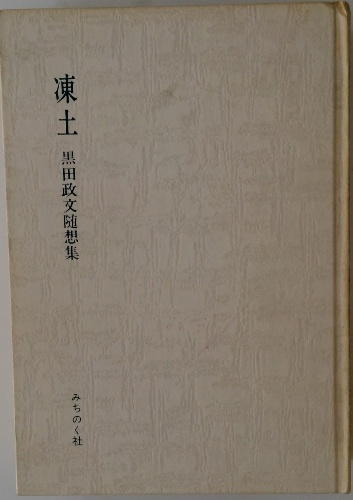 凍土
黒田政文随想集
みちのく社